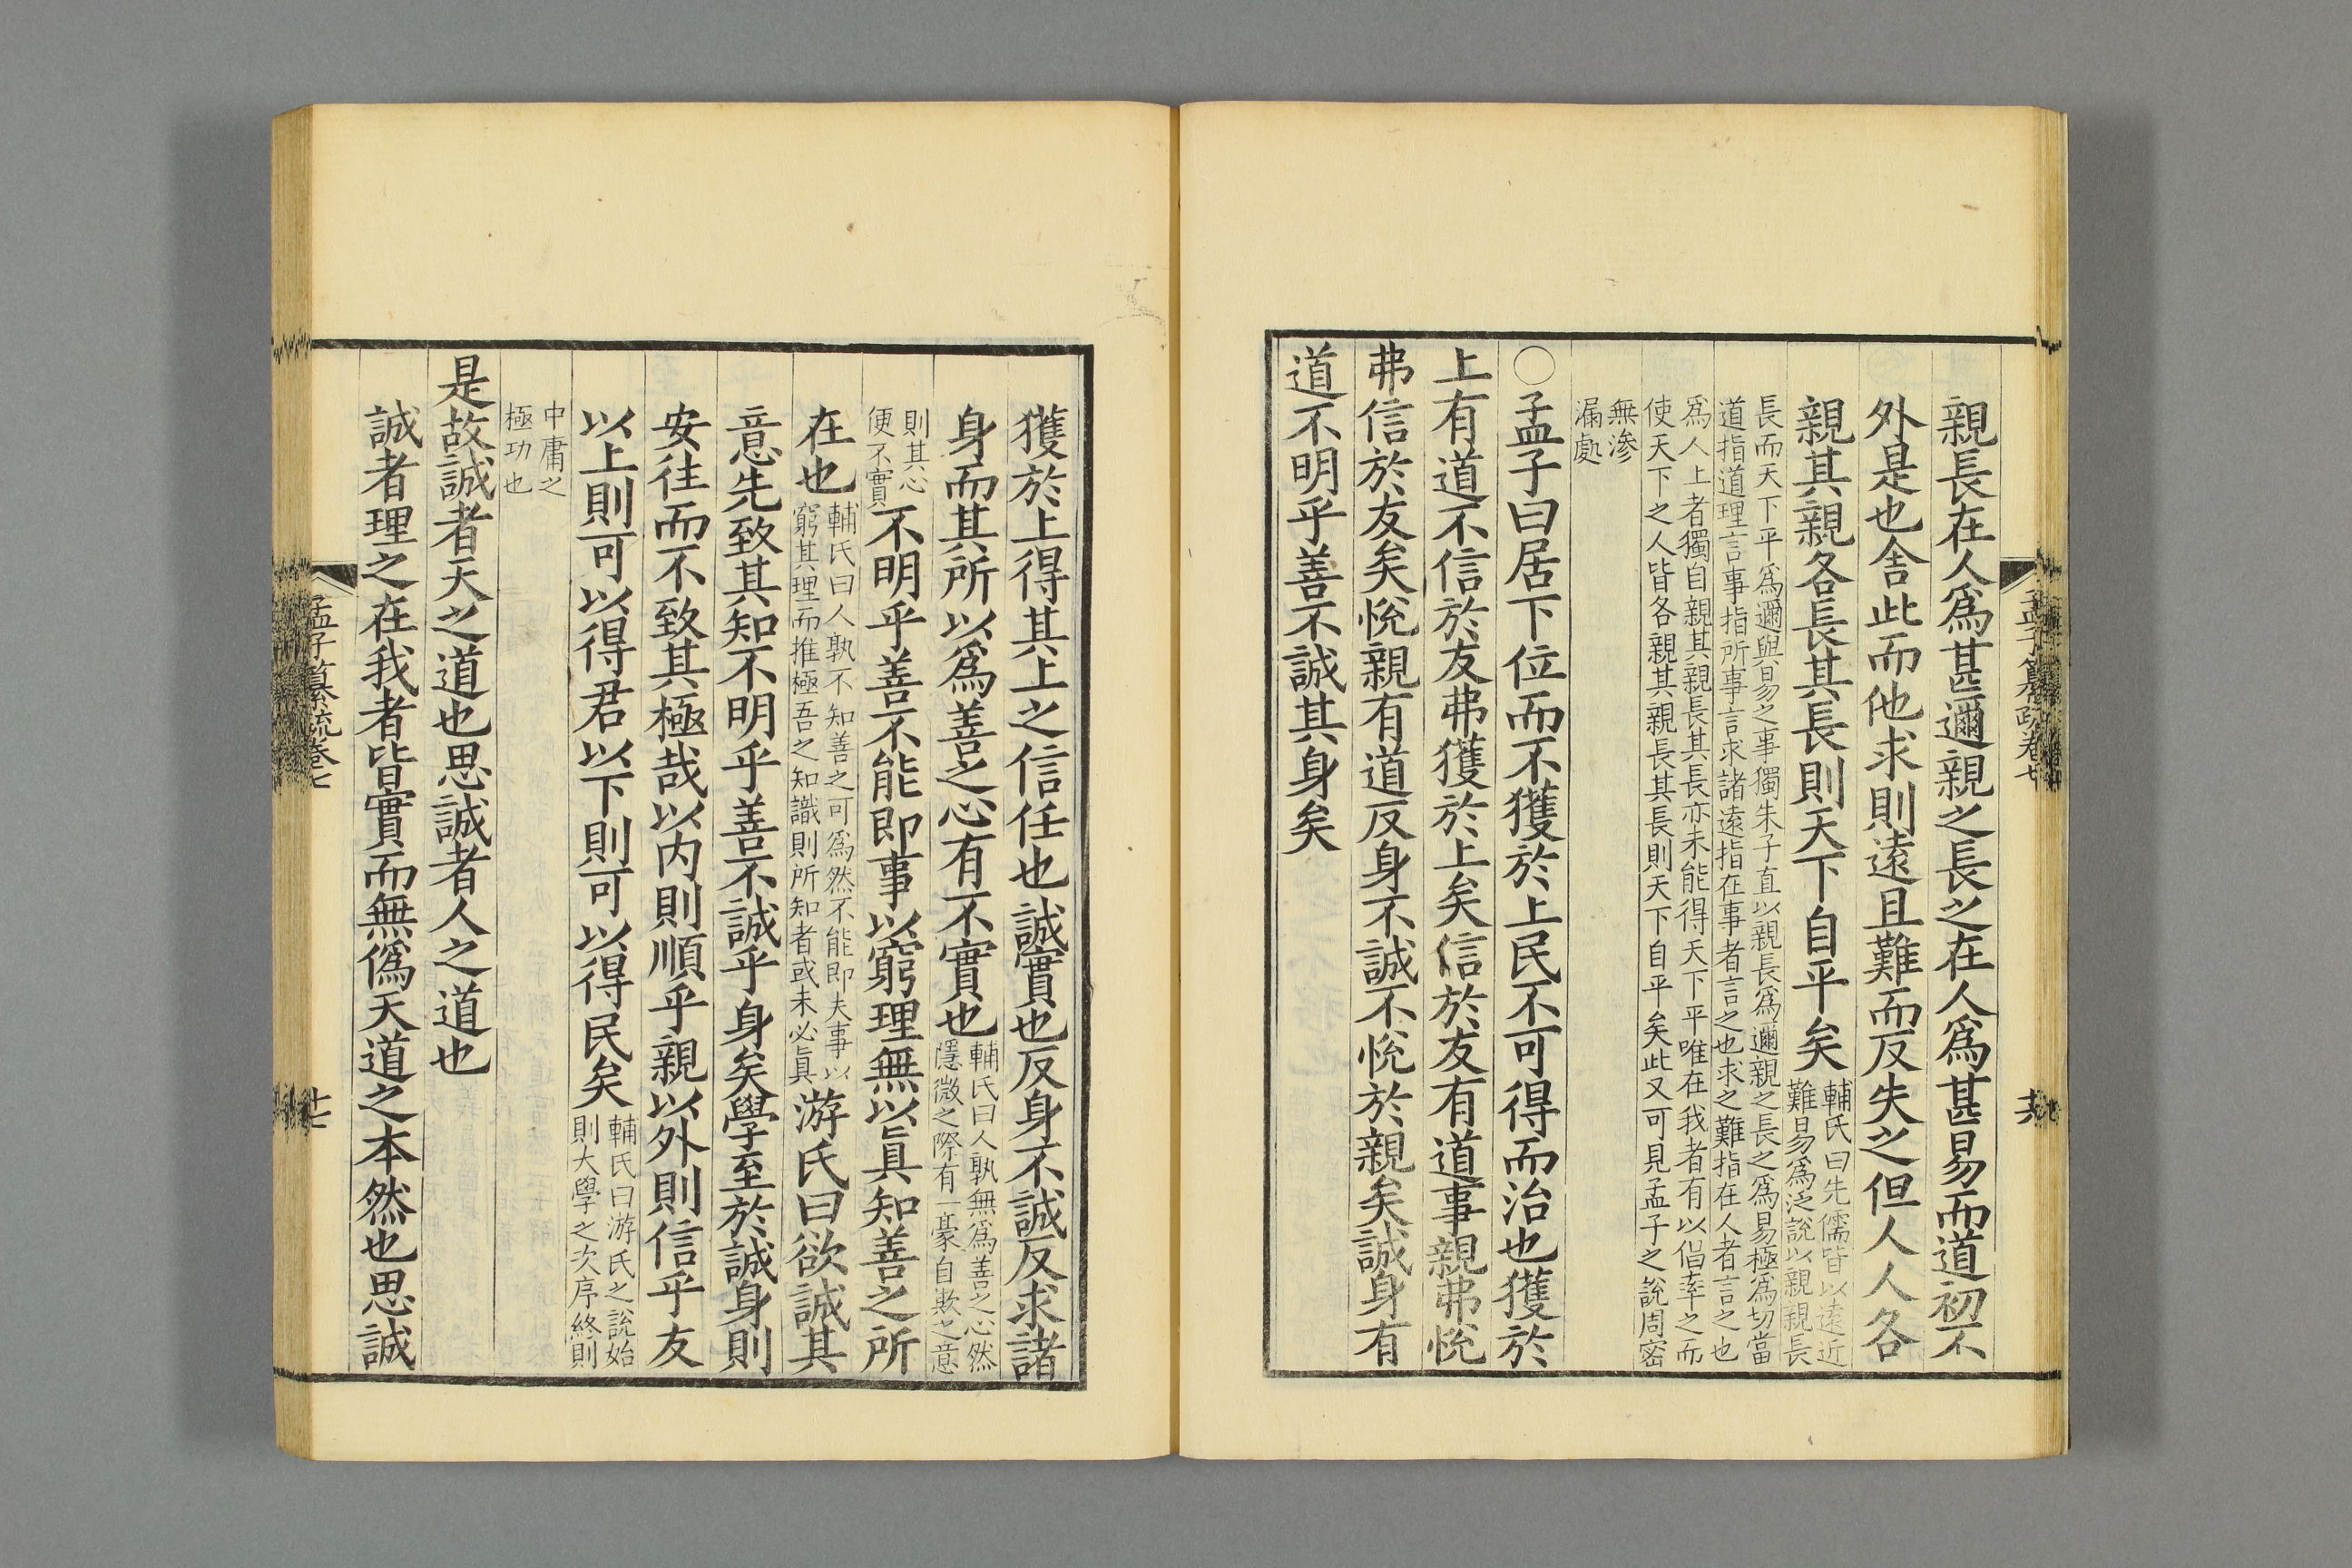 親長在人爲甚邇親之長之在人爲甚易而道初不
外是也舍此而他求則遠且難而反失之但人人各
親其親各長其長則天下自平矣
輔氏曰先儒皆以遠近
難易爲泛說以親親長
長而天下平爲邇與易之事獨朱子直以親長爲邇親之長之爲易極爲切當
道指道理言事指所事言求諸遠指在事者言之也求之難指在人者言之也
爲人上者獨自親其親長其長亦未能得天下平唯在我者有以倡率之而
使天下之人皆各親其親長其長則天下自平矣此又可見孟子之說周密
無滲
漏處
○孟子曰居下位而不獲於上民不可得而治也獲於
上有道不信於友弗獲於上矣信於友有道事親弗悅
弗信於友矣悅親有道反身不誠不悅於親矣誠身有
道不明乎善不誠其身矣
孟子纂疏卷七
獲於上得其上之信任也誠實也反身不誠反求諸
身而其所以爲善之心有不實也
輔氏曰人孰無爲善之心然
隱微之際有一豪自欺之意
則其心
便不實
不明乎善不能即事以窮理無以眞知善之所
在也
輔氏曰人孰不知善之可爲然不能即夫事以
窮其理而推極吾之知識則所知者或未必眞
游氏曰欲誠其
意先致其知不明乎善不誠乎身矣學至於誠身則
安往而不致其極哉以内則順乎親以外則信乎友
以上則可以得君以下則可以得民矣
輔氏曰游氏之說始
則大學之次序終則
中庸之
極功也
是故誠者天之道也思誠者人之道也
誠者理之在我者皆實而無僞天道之本然也思誠
孟子纂疏卷七
廿七